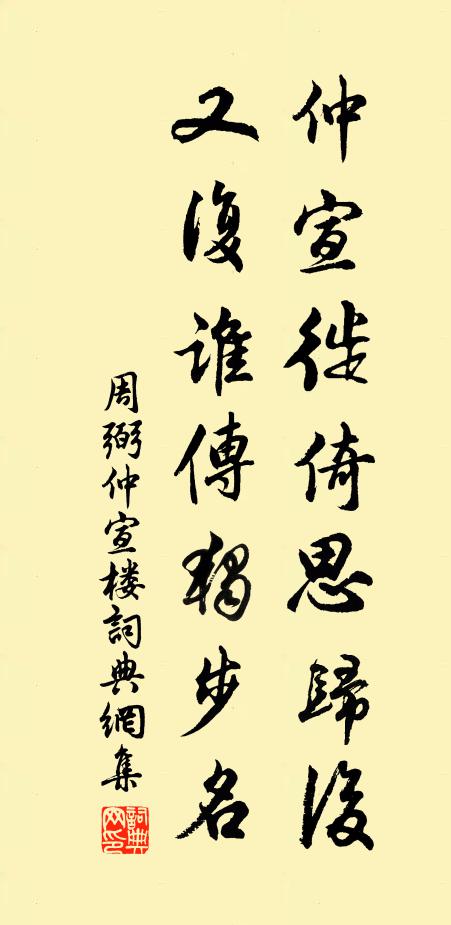 仲宣徙倚思歸後
又復誰傳獨步名
周弼仲宣楼詞典網集
詞典網印